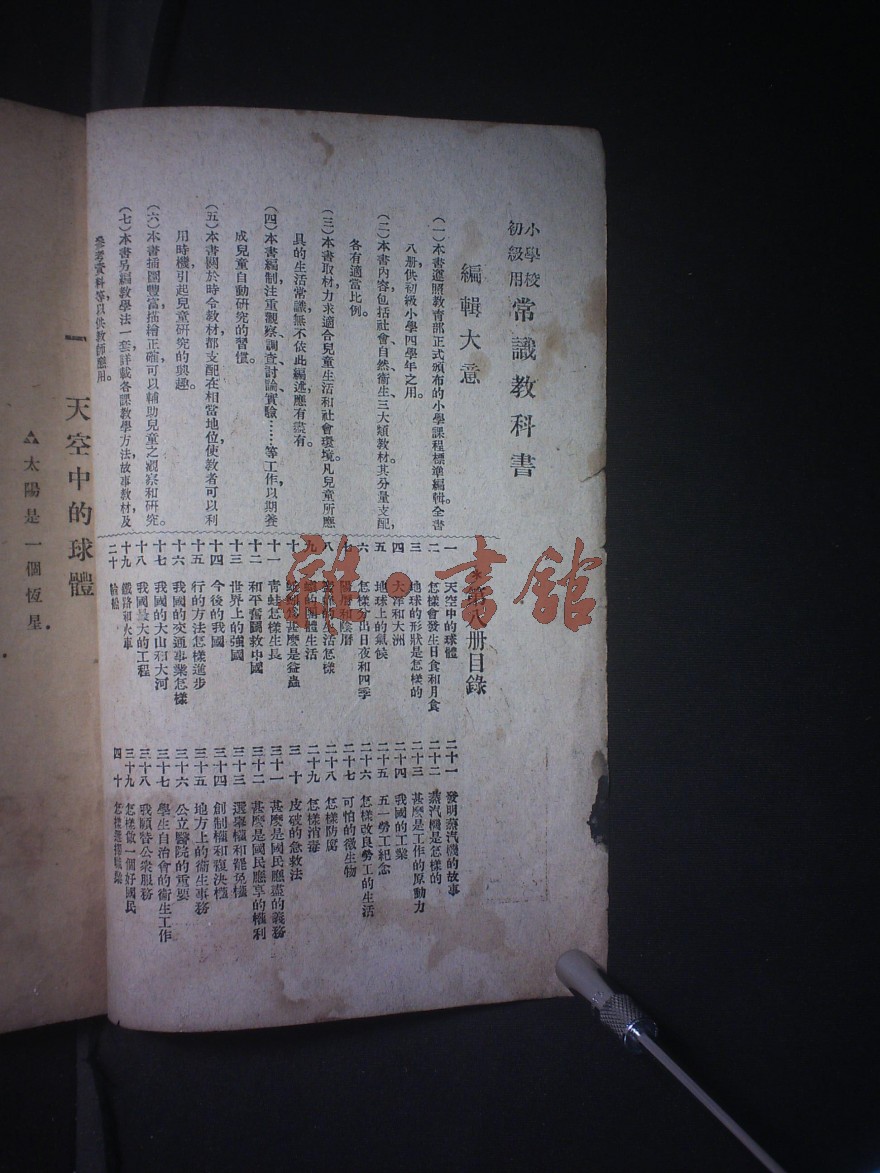 小學校
初級用
常識教科書
編輯大意
(一)本書遵照教育部正式頒布的小學課程標準編輯全書
八册供初級小學四學年之用。
(二)本書內容包括社會、自然、衞生三大類教材其分量支配,
各有適當比例。
(三)本書取材力求適合兒童生活和社會環境凡兒童所應
具的生活常識無不依此編述應有盡有。
(四)本書編制注重觀察、調查、討論、實驗……等工作以期養
成兒童自動研究的習慣。
(五)本書關於時令教材都支配在相當地位使教者可以利
用時機引起兒童研究的興趣。
(六)本書插圖豐富描繪正確可以輔助兒童之觀察和研究。
(七)本書另編教學法一套詳載各課教學方法故事教材及
參考資料等以供教師應用。
第八册目錄
一 天空中的球體
二 怎樣會發生日食和月食
三 地球的形狀是怎樣的
四 大洋和大洲
五 地球上的氣候
六 怎樣分出日夜和四季
七 陽曆和陰曆
八 的生活怎樣
九 的團體生活
十 甚麼是益蟲
十一 青蛙怎樣生長
十二 和平奮鬭救中國
十三 世界上的強國
十四 今後的我國
十五 行的方法怎樣進步
十六 我國的交通事業怎樣
十七 我國的大山和大河
十八 我國最大的工程
十九 鐵路和火車
二十 輪船
二十一 發明蒸汽機的故事
二十二 蒸汽機是怎樣的
二十三 甚麼是工作的原動力
二十四 我國的工業
二十五 五一勞工紀念
二十六 怎樣改良勞工的生活
二十七 可怕的微生物
二十八 怎樣防腐
二十九 怎樣消毒
三十 皮破的急救法
三十一 甚麼是國民應盡的義務
三十二 甚麼是國民應享的權利
三十三 選舉權和罷免權
三十四 創制權和複決權
三十五 地方上的衞生事務
三十六 公立醫院的重要
三十七 學生自治會的衞生工作
三十八 我願替公衆服務
三十九 怎樣做一個好國民
四十 怎樣選擇職業
一 天空中的球體
太陽是一個恆星
書館